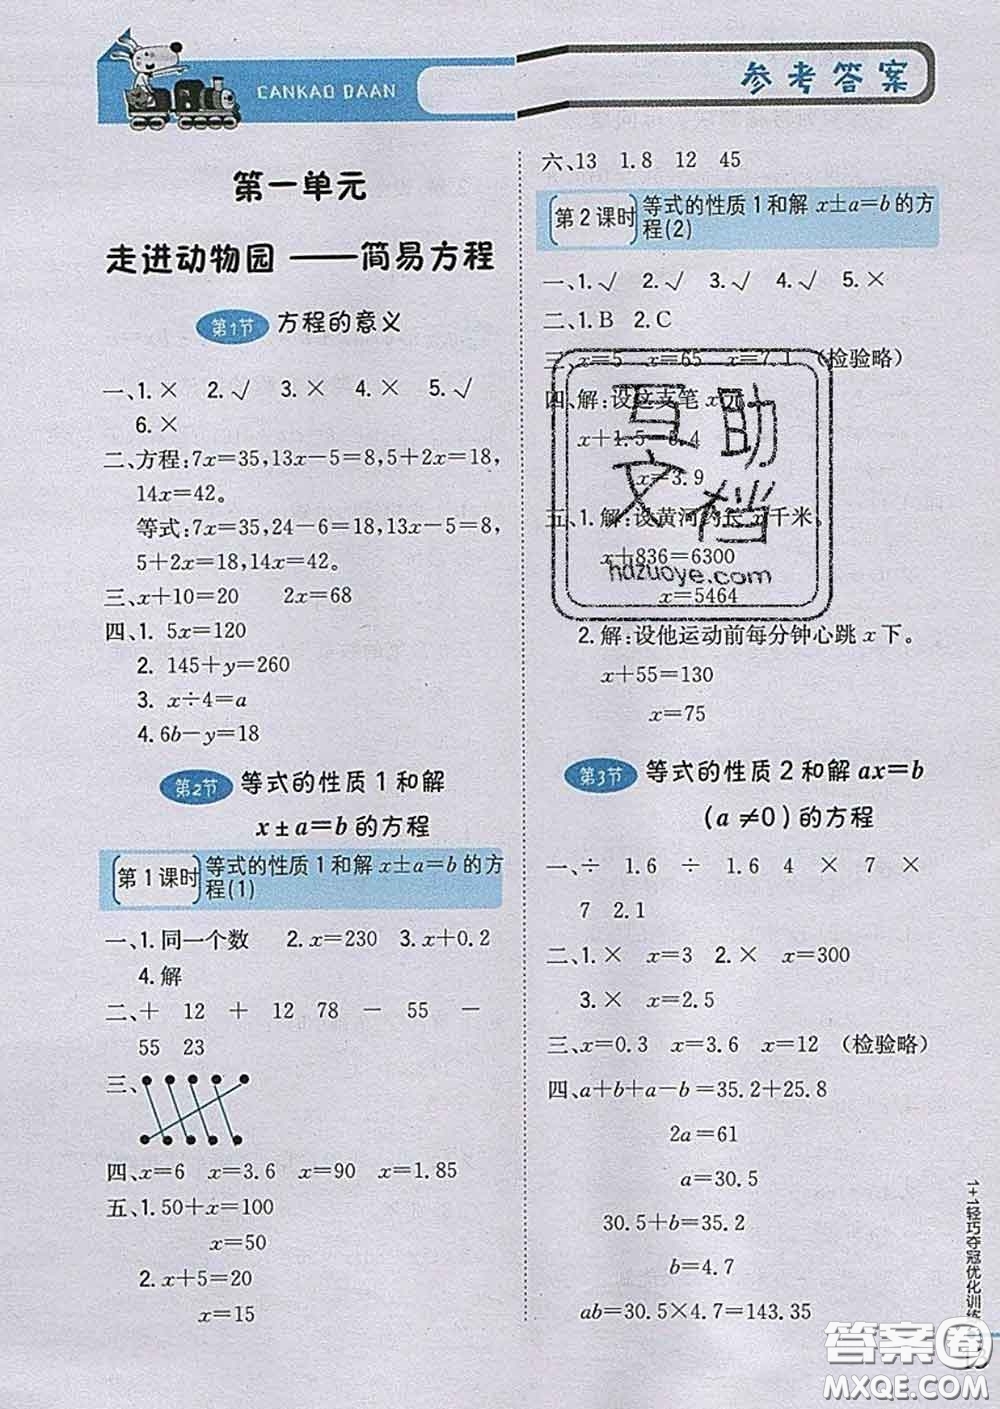 CANKAO DAAN
参考答案
第一单元
走进动物园 ——简易方程
第1节 方程的意义
一、1. × 2. √ 3. × 4. × 5. √
6. ×
二、方程:7x=35,13x-5=8,5+2x=18,
14x=42。
等式:7x=35,24-6=18,13x-5=8,
5+2x=18,14x=42。
三、x+10=20 2x=68
四、1. 5x=120
2. 145+y=260
3. x÷4=a
4. 6b-y=18
第2节 等式的性质1和解
x±a=b的方程
第1课时 等式的性质1和解x±a=b的方
程(1)
一、1. 同一个数 2. x=230 3. x+0.2
4. 解
二、+ 12 + 12 78 - 55 -
55 23
三、
四、x=6 x=3.6 x=90 x=1.85
五、1. 50+x=100
x=50
2. x+5=20
x=15
六、13 1.8 12 45
第2课时 等式的性质1和解x±a=b的方
程(2)
一、1. √ 2. √ 3. √ 4. √ 5. ×
二、1. B 2. C
三 x=5 x=65 x=7.1 (检验略)
四、解:设这支笔x元
x+1.5 8.4
x=3.9
五、1. 解:设黄河约长x千米。
x+836=6300
x=5464
2. 解:设他运动前每分钟心跳x下。
x+55=130
x=75
第3节 等式的性质2和解ax=b
(a≠0)的方程
一、÷ 1.6 ÷ 1.6 4 × 7 ×
7 2.1
二、1. × x=3 2. × x=300
3. × x=2.5
三、x=0.3 x=3.6 x=12 (检验略)
四、a+b+a-b=35.2+25.8
2a=61
a=30.5
30.5+b=35.2
b=4.7
ab=30.5×4.7=143.35
互助
文档
hdzuoye.com
1+1轻巧夺冠优化训练
答案圈
MXQE.COM